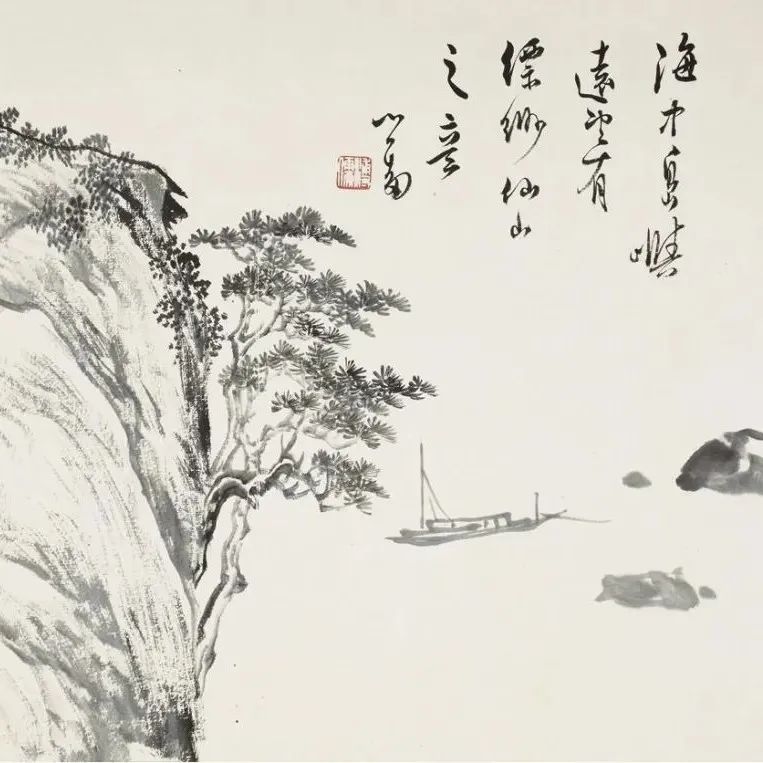 海中島嶼
遠望有
縹緲仙山
之意
心畬
溥儒